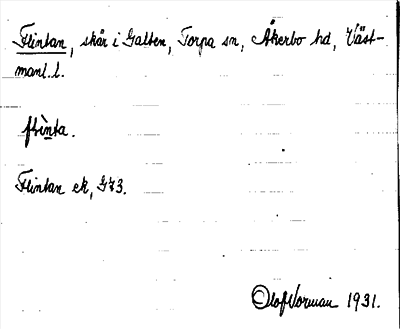 Flintan, skär i Galten, Torpa sn, Åkerbo hd, Väst-
manl. l.
flìnta.
Flintan ek, G73.
Olof Norman 1931.